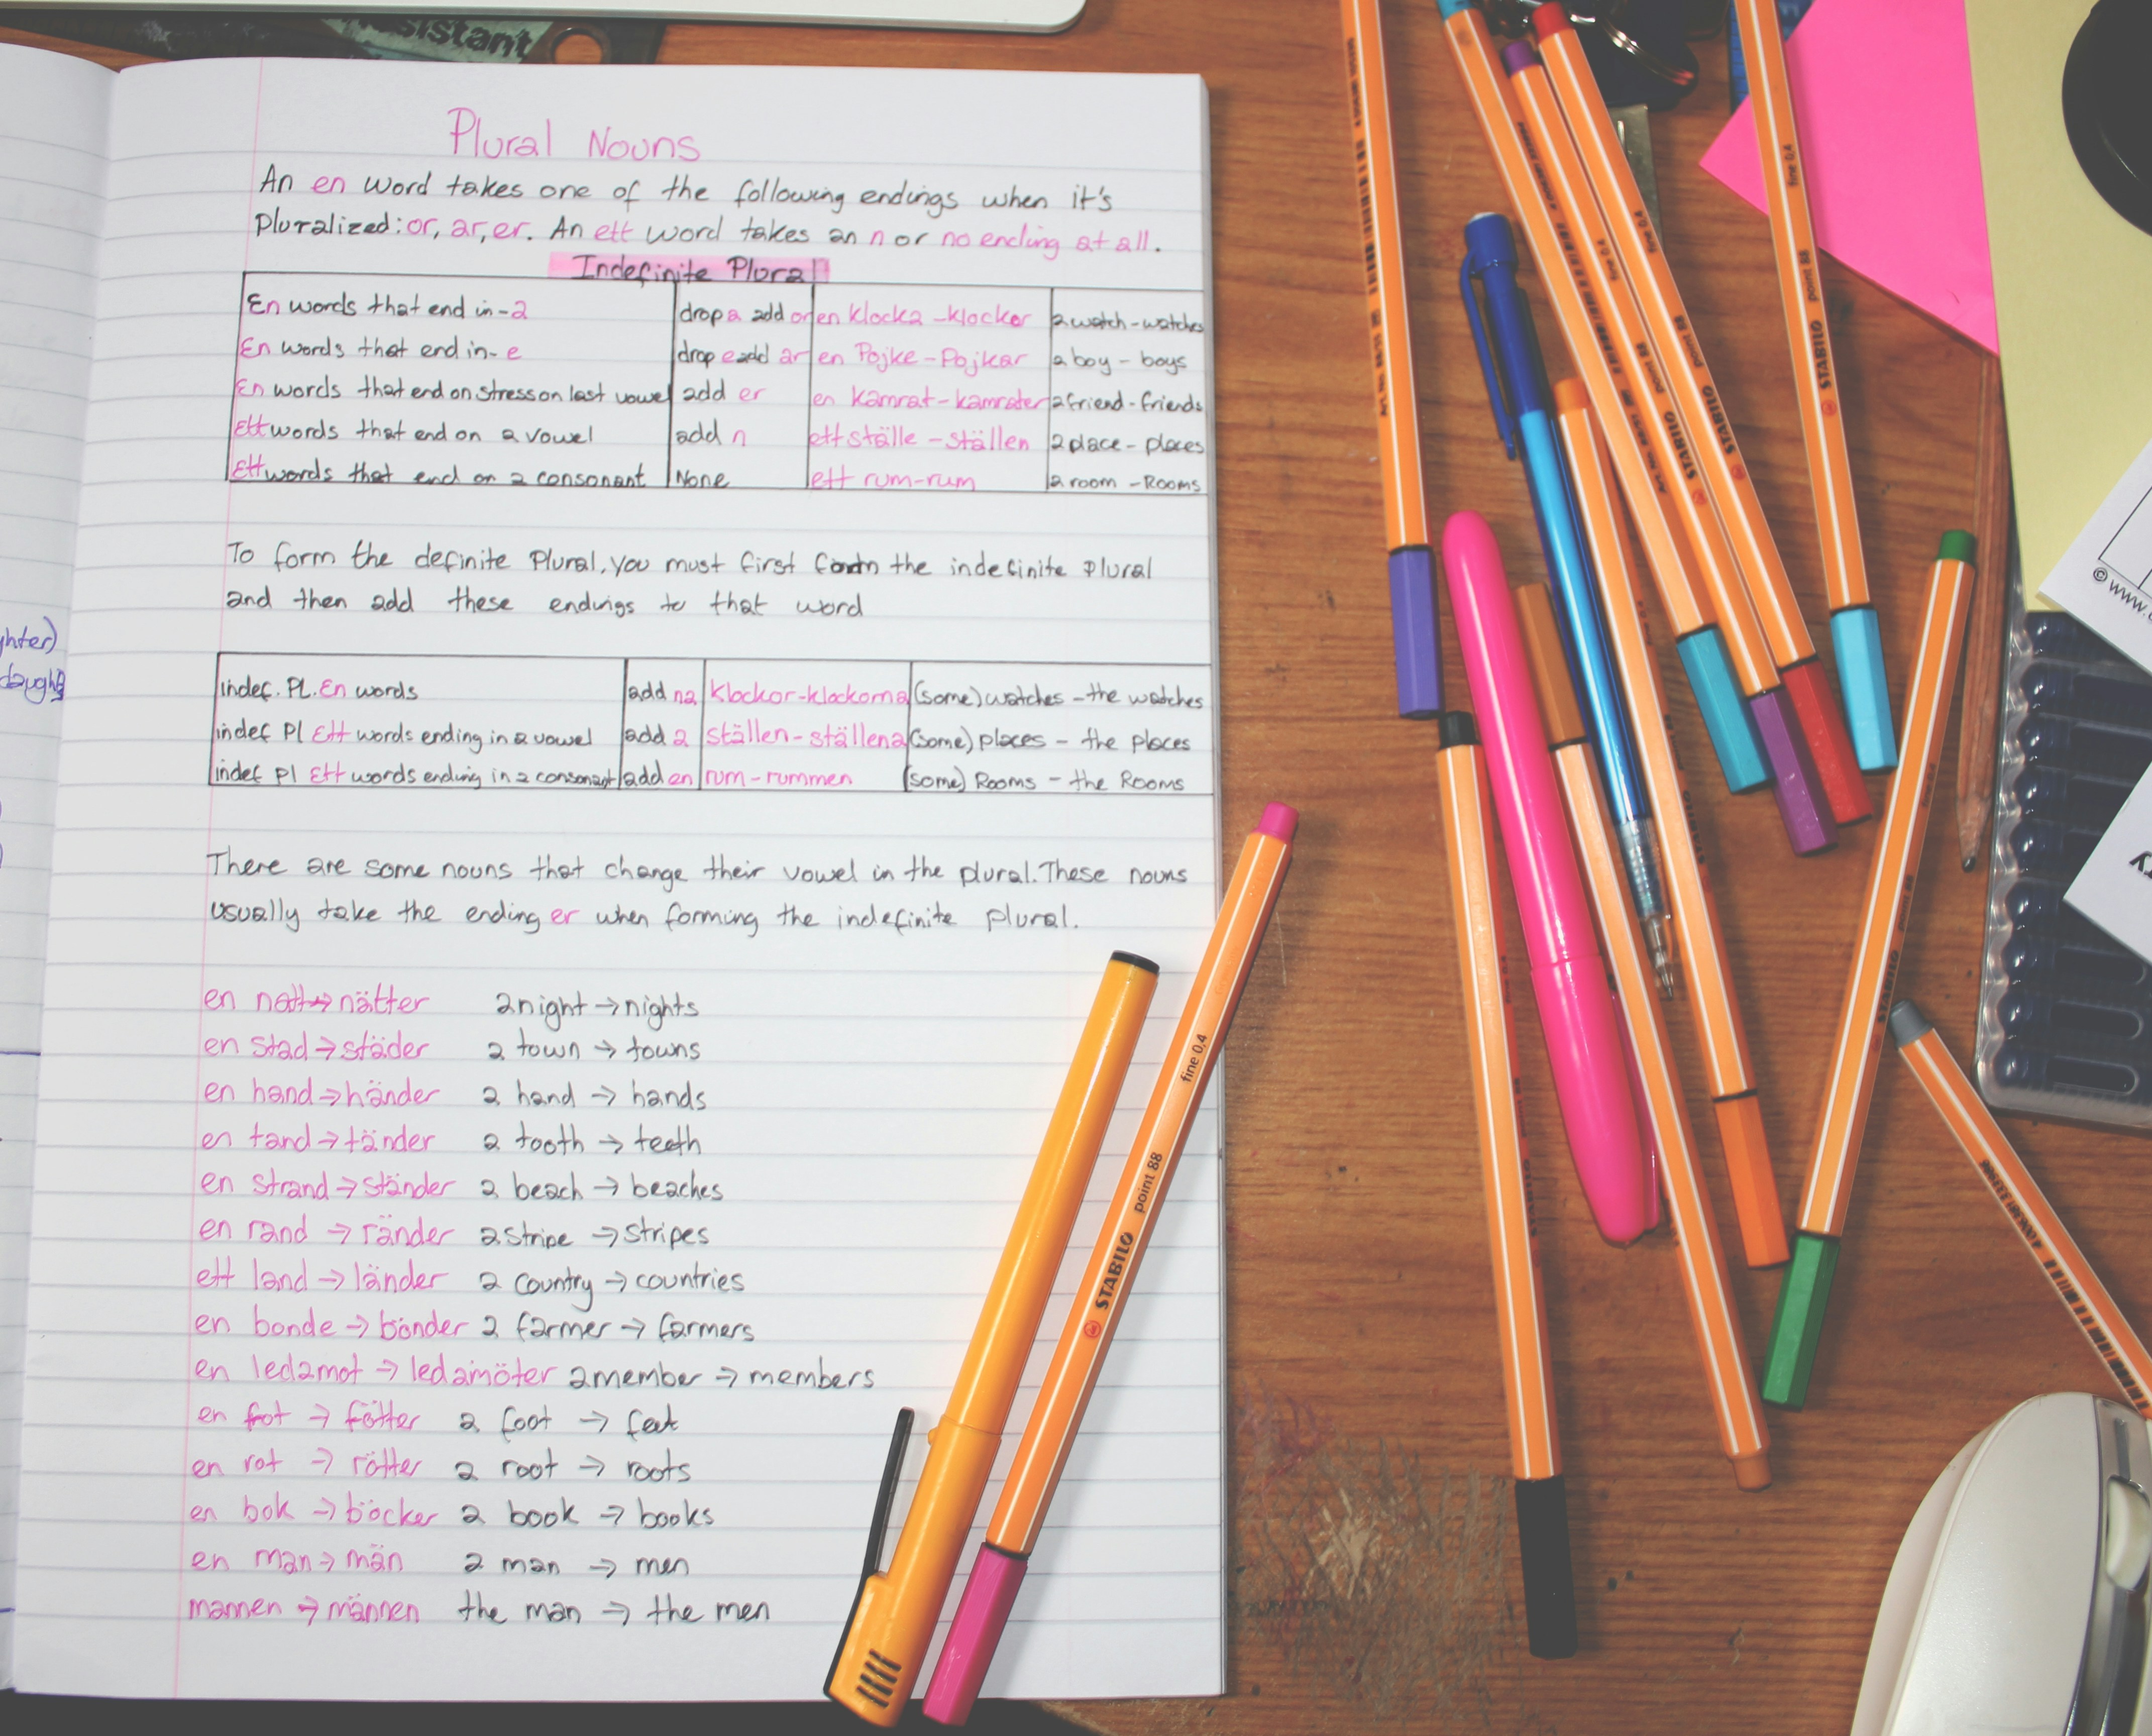 sistant
Plural Nouns
An en word takes one of the following endings when it's
pluralized: or, ar, er. An ett word takes an n or no ending at all.
Indefinite Plural
En words that end in -a drop a add or en klocka - klockor a watch - watches
En words that end in - e drop e add ar en Pojke - Pojkar a boy - boys
En words that end on stress on last vowel add er en kamrat - kamrater a friend - friends
Ett words that end on a vowel add n ett ställe - ställen a place - places
Ett words that end on a consonant None ett rum - rum a room - Rooms
To form the definite Plural, you must first form the indefinite plural
and then add these endings to that word
indef. PL. En words add na klockor - klockorna (some) watches - the watches
indef Pl Ett words ending in a vowel add a ställen - ställena (some) places - the places
indef pl Ett words ending in a consonant add en rum - rummen (some) Rooms - the Rooms
There are some nouns that change their vowel in the plural. These nouns
usually take the ending er when forming the indefinite plural.
en natt → nätter a night → nights
en stad → städer a town → towns
en hand → händer a hand → hands
en tand → tänder a tooth → teeth
en strand → ständer a beach → beaches
en rand → ränder a stripe → stripes
ett land → länder a country → countries
en bonde → bönder a farmer → farmers
en ledamot → ledamöter a member → members
en fot → fötter a foot → feet
en rot → rötter a root → roots
en bok → böcker a book → books
en man → män a man → men
mannen → männen the man → the men
ghter)
STABILO point 88 fine 0,4
STABILO point 88 fine 0,4
STABILO point 88 fine 0,4
STABILO point 88 fine 0,4
STABILO
© www.